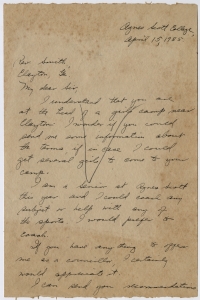 Agnes Scott College,
April 15, 1925
Rev. Smith,
Clayton, Ga
My dear Sir,
I understand that you are
at the head of a girls camp near
Clayton. I wonder if you would
send me some information about
the terms if in case I could
get several girls to come to your
camp.
I am a senior at Agnes Scott
this year and I could coach any
subject or help with any of
the sports. I would prefer to
coach.
If you have any thing to offer
me as a councillor I certainly
would appreciate it.
I can send you recommendations